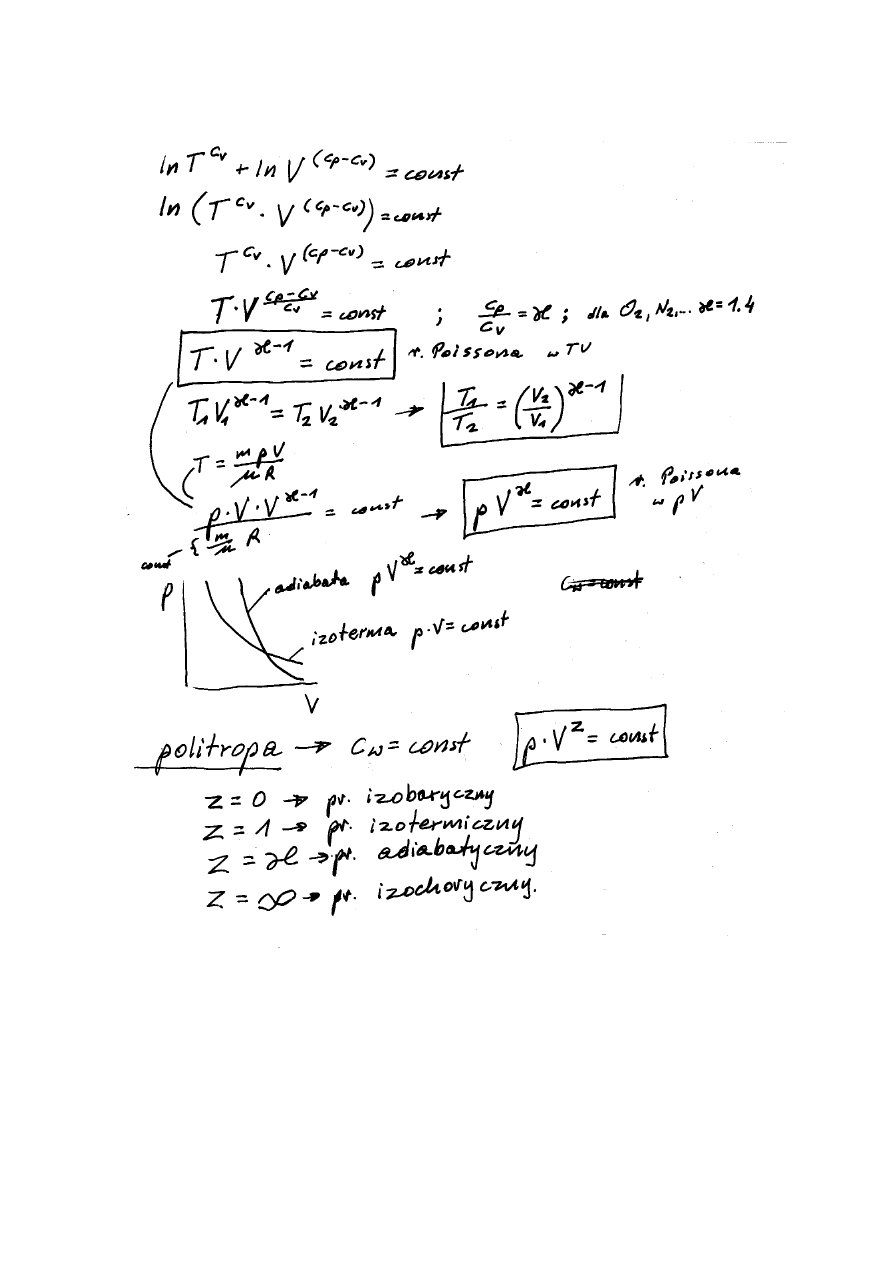 ln T^cv + ln V^(cp-cv) = const
ln (T^cv · V^(cp-cv)) = const
T^cv · V^(cp-cv) = const
T·V^((cp-cv)/cv) = const ; cp/cv = ϰ ; dla O₂, N₂,... ϰ=1.4
T·V^(ϰ-1) = const r. Poissona w TV
T₁V₁^(ϰ-1) = T₂V₂^(ϰ-1) → T₁/T₂ = (V₂/V₁)^(ϰ-1)
T = mpV/μR
p·V·V^(ϰ-1)/(m/μ R) = const → pV^ϰ = const r. Poissona w pV
const
p
adiabata pV^ϰ = const
izoterma p·V = const
V
politropa → Cw = const p·V^z = const
z = 0 → pr. izobaryczny
z = 1 → pr. izotermiczny
z = ϰ → pr. adiabatyczny
z = ∞ → pr. izochoryczny.